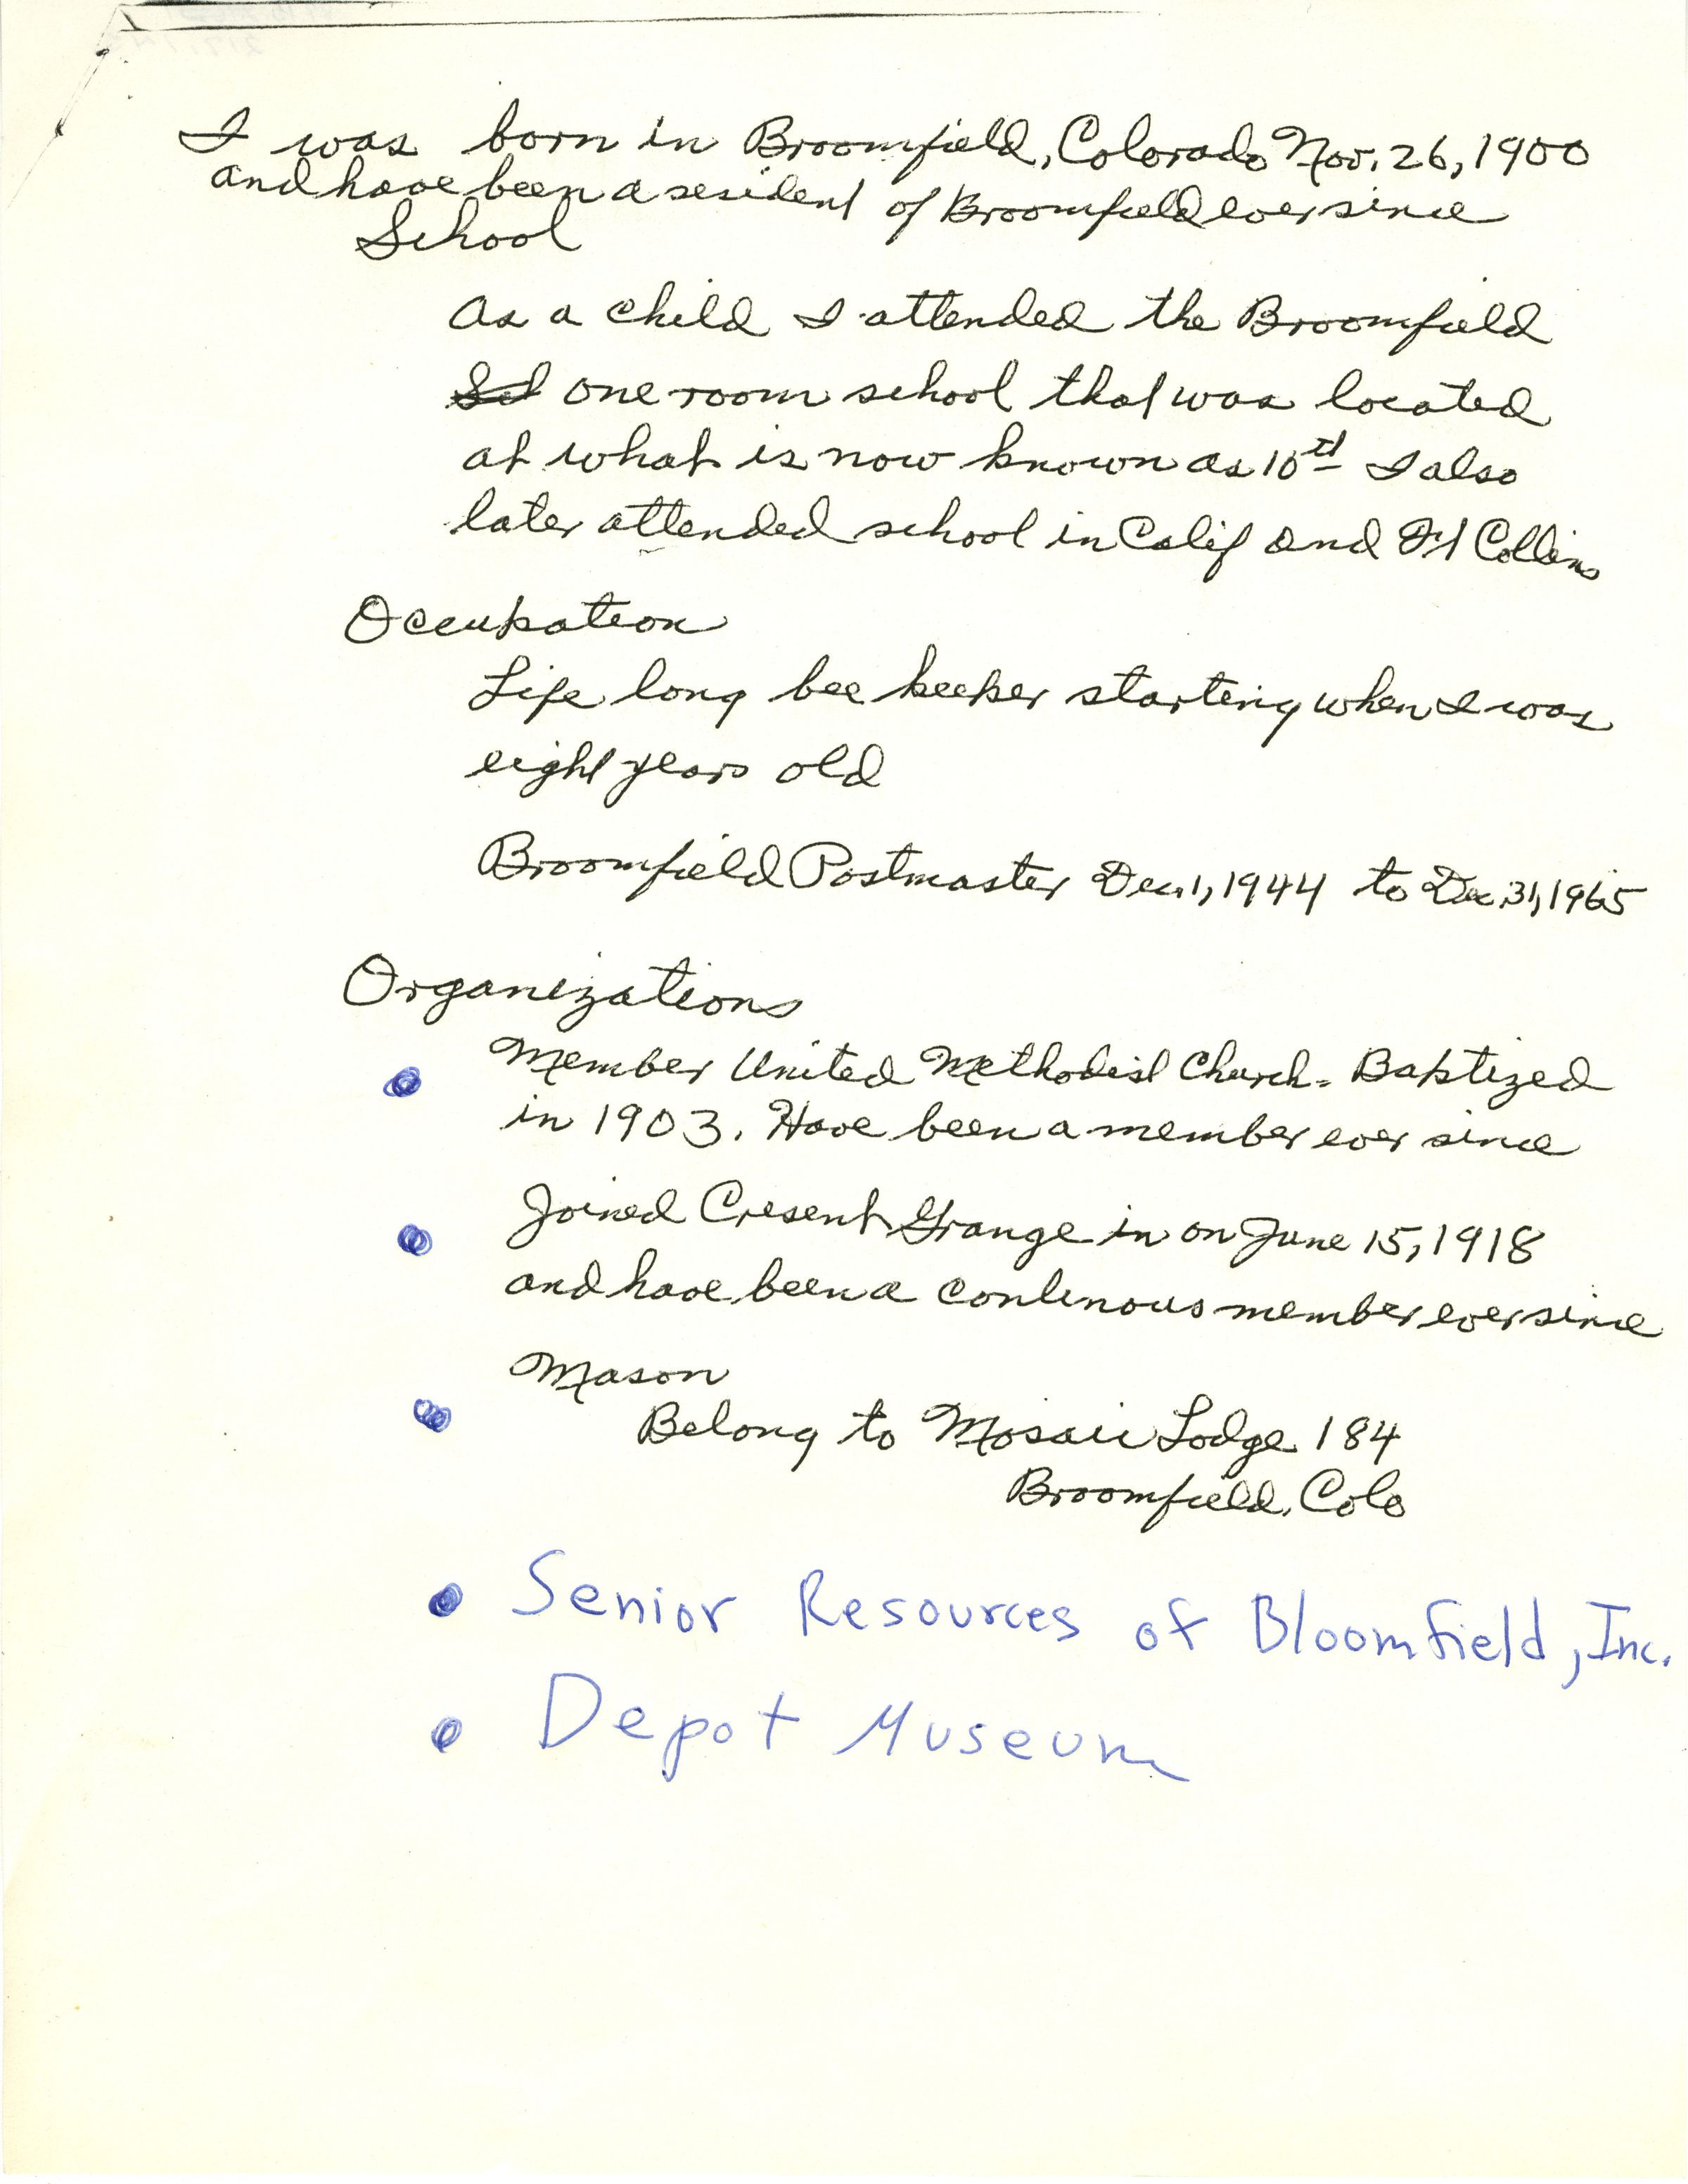 I was born in Broomfield, Colorado Nov. 26, 1900
and have been a resident of Broomfield ever since
School
As a child I attended the Broomfield
Sch one room school that was located
at what is now known as 10th I also
later attended school in Calif and Ft Collins
Occupation
Life long bee keeper starting when I was
eight years old
Broomfield Postmaster Dec. 1, 1944 to Dec 31, 1965
Organizations
• Member United Methodist Church - Baptized
in 1903. Have been a member ever since
• Joined Cresent Grange in on June 15, 1918
and have been a contenous member ever since
Mason
• Belong to Mosaic Lodge 184
Broomfield, Colo
• Senior Resources of Bloomfield, Inc.
• Depot Museum